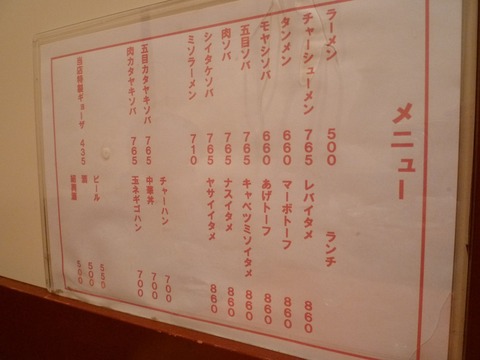 メニュー
ラーメン 500
チャーシューメン 765
タンメン 660
モヤシソバ 660
五目ソバ 765
肉ソバ 765
シイタケソバ 765
ミソラーメン 710
五目カタヤキソバ 765
肉カタヤキソバ 765
当店特製ギョーザ 435
ランチ
レバイタメ 860
マーボトーフ 860
あげトーフ 860
キャベツミソイタメ 860
ナスイタメ 860
ヤサイイタメ 860
チャーハン 700
中華丼 700
玉ネギゴハン 700
ビール 550
酒 500
紹興酒 500